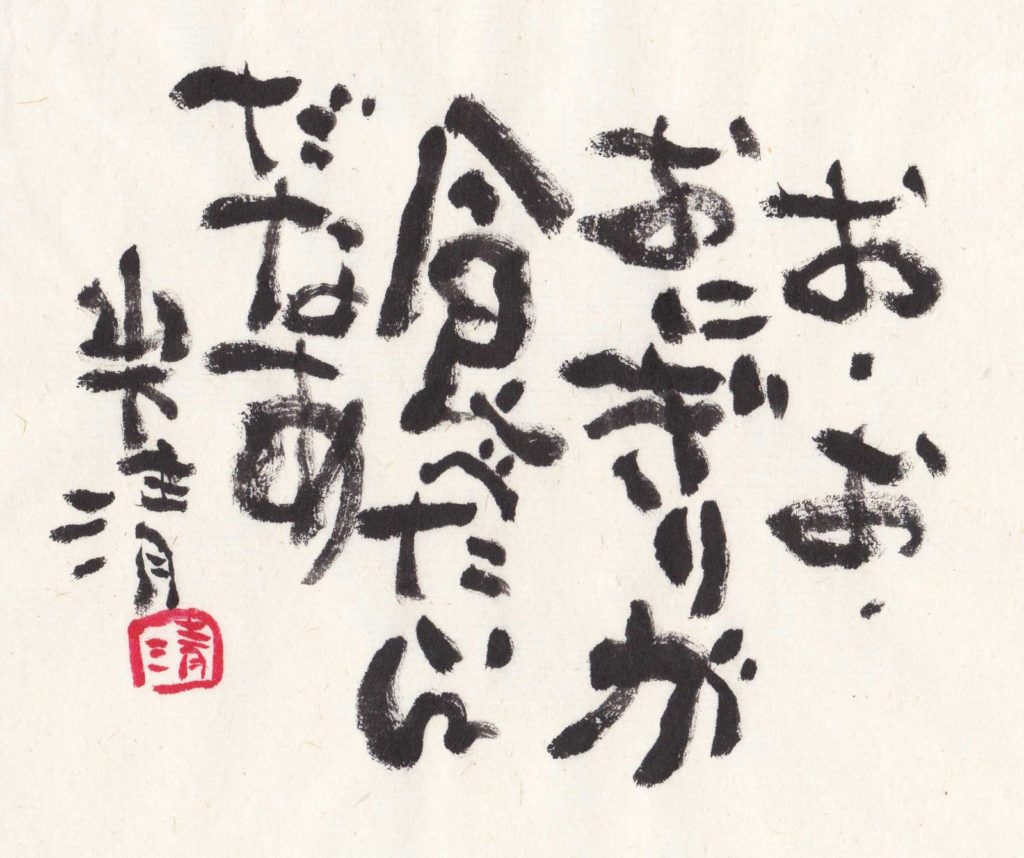 お・お・
おにぎりが
食べたいん
だなあ
山下清
清